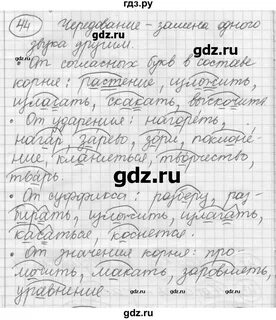 44 Чередование - замена одного
звука другим.
• От согласных букв в составе
корня: растение, изложить,
излагать, скакать, выскочить
• От ударения: нагореть,
нагар, зарево, зори, поклоне-
ние, кланяться, творчество,
тварь.
• От суффикса: разберу, раз-
бирать, изложить, излагать,
касаться, коснется.
• От значения корня: про-
мочить, макать, заровнять,
уравнение
gdz.ru
gdz.ru
gdz.ru